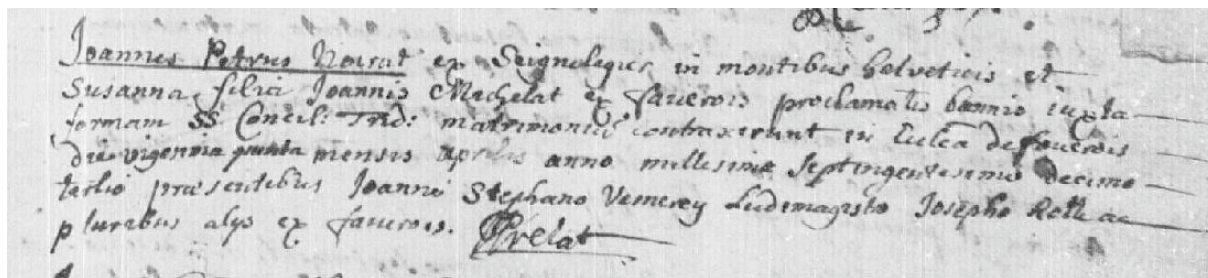 Joannes Petrus Noirat ex Seignolegier in montibus helveticis et
Susanna filia Joannis Machelat ex faverois proclamatis bannis iuxta
formam SS Concil: Trid: matrimoniū contraxerunt in Ecclēa de faverois
die vigesima quinta mensis aprilis anno millesimo septingentesimo decimo
tertio præsentibus Joanne Stephano Vemerey Ludimagistro Josepho Rotte ac
pluribus alys ex faverois. Prelat